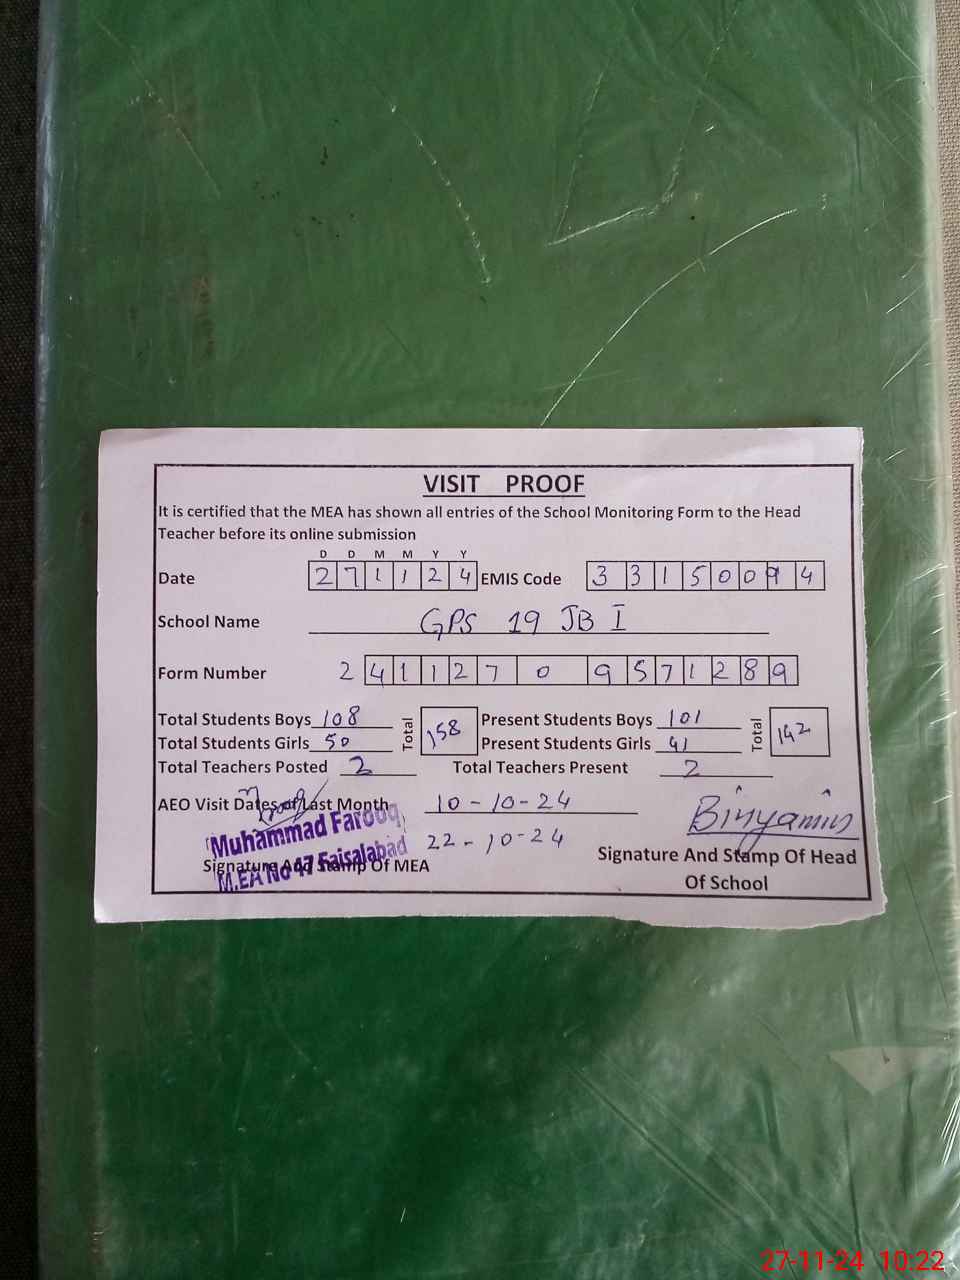 VISIT PROOF
It is certified that the MEA has shown all entries of the School Monitoring Form to the Head
Teacher before its online submission
D D M M Y Y
Date 2 7 1 1 2 4 EMIS Code 3 3 1 5 0 0 9 4
School Name GPS 19 JB I
Form Number 2 4 1 1 2 7 0 9 5 7 1 2 8 9
Total Students Boys 108 Total 158 Present Students Boys 101 Total 142
Total Students Girls 50 Present Students Girls 41
Total Teachers Posted 2 Total Teachers Present 2
AEO Visit Dates of Last Month 10-10-24
22-10-24
Binyamin
Muhammad Farooq
M.EA No 47 Faisalabad
Signature And Stamp Of MEA
Signature And Stamp Of Head
Of School
27-11-24 10:22